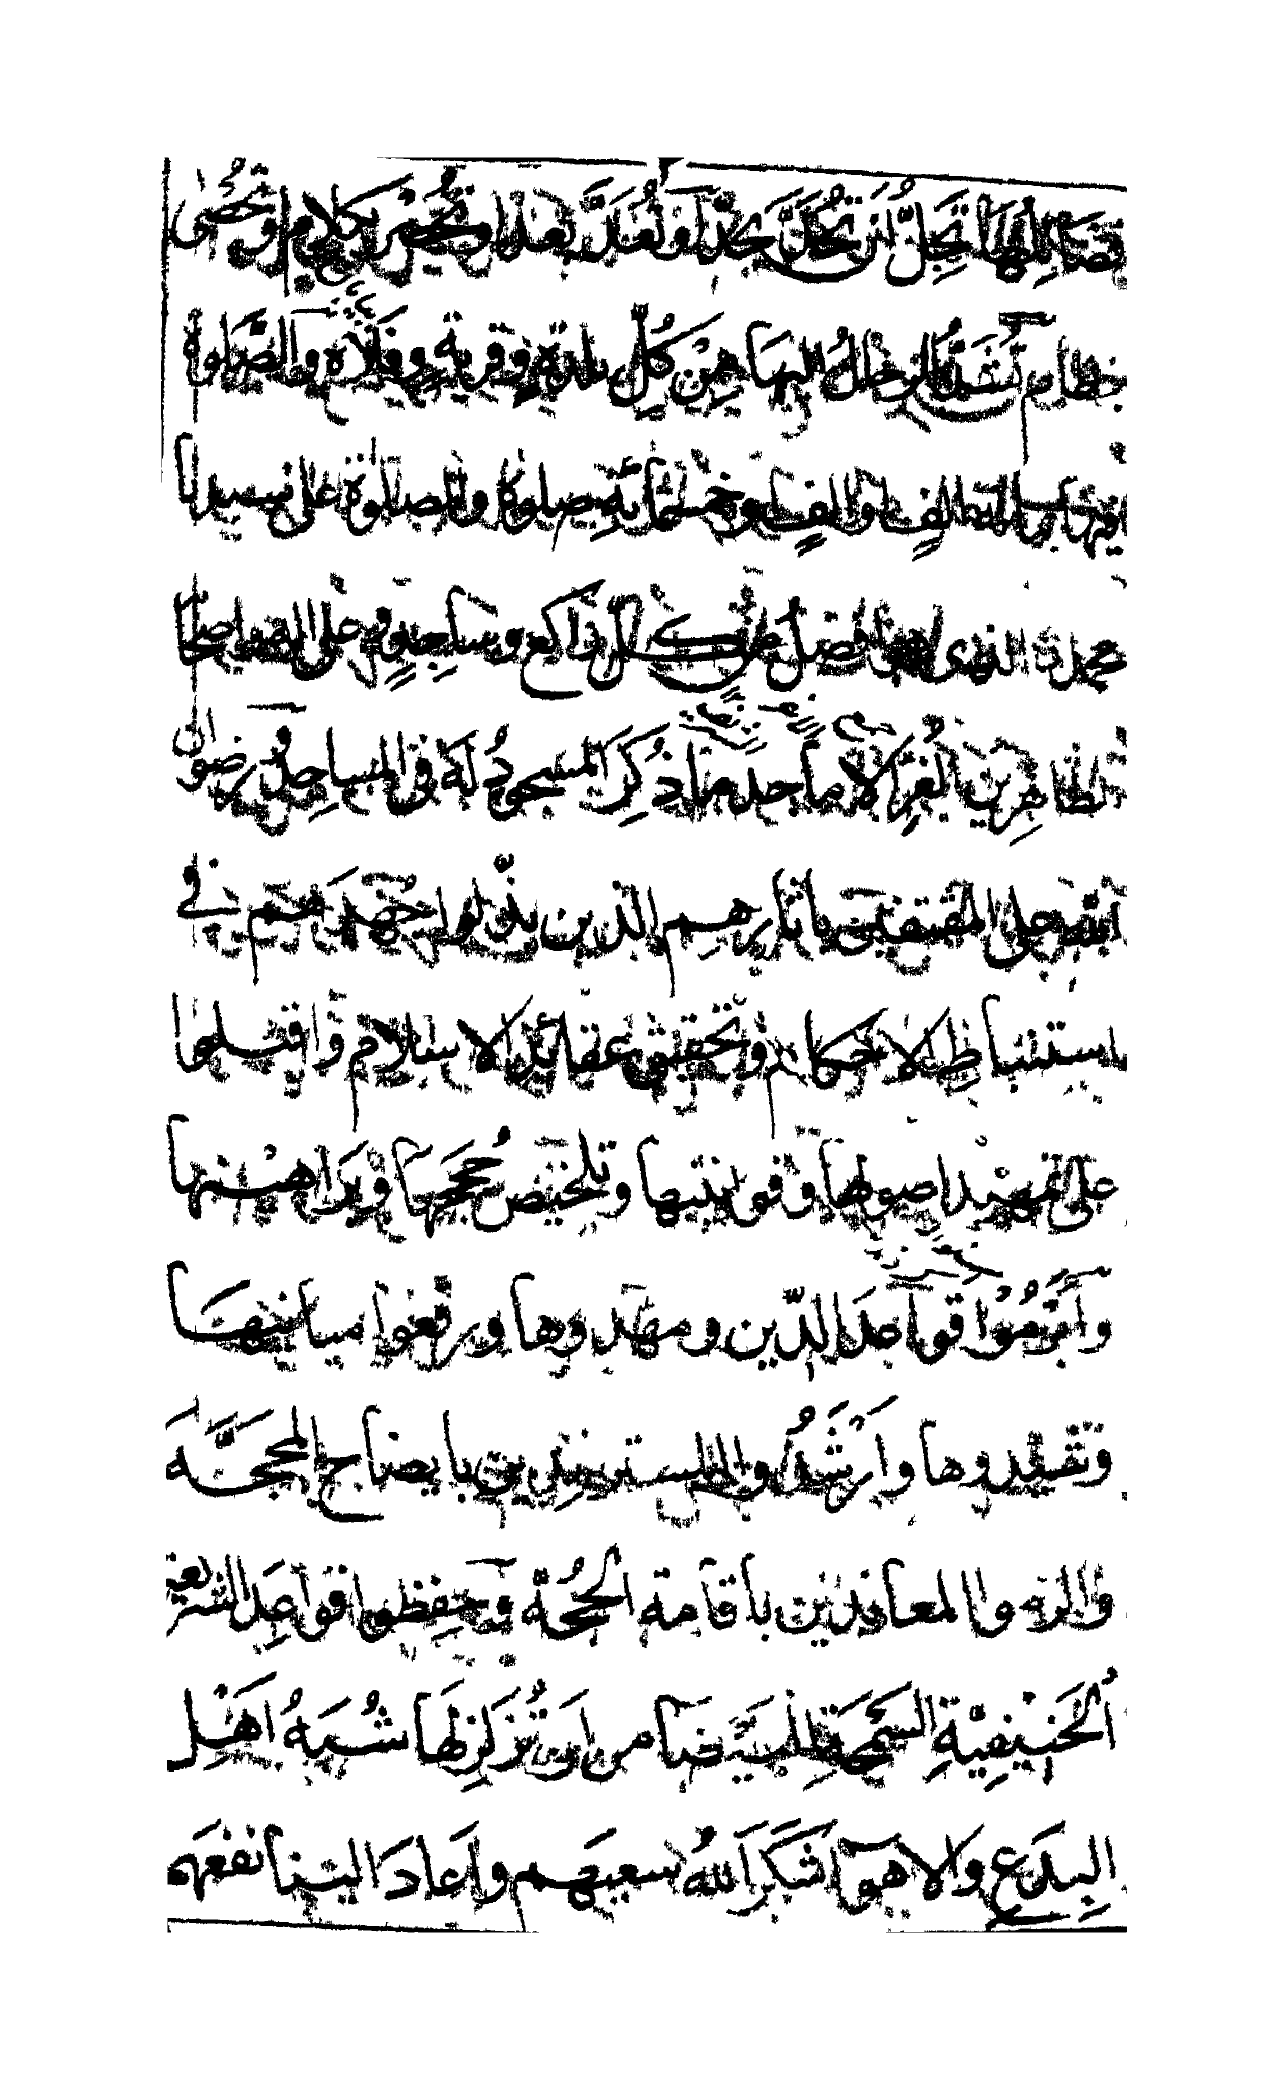 فضائلها تجل ان تحل بحد او تعد بعد او تحصر بكلام او تحصى
تشد الرحال اليها من كل بلدة وقرية وفلاة والصلوة
فيها بمائة الف والف وخمسمائة صلوة والصلوة على سيدنا
محمد الذي هو افضل من كل راكع وساجد وعلى اله واصحابه
الطاهرين الغر الاماجد ما ذكر المسجود له في المساجد ورضوان
الله على المقتفين باثارهم الذين بذلوا جهدهم في
استنباط الاحكام وتحقيق عقائد الاسلام واقبلوا
على تمهيد اصولها وقوانينها وتلخيص حججها وبراهينها
واقاموا قواعد الدين ومهدوها ورفعوا مبانيها
وقيدوها وارشدوا المسترشدين بايضاح المحجة
والزموا المعاندين باقامة الحجة وحفظوا قواعد الشريعة
الحنيفية السمحة البيضا من ان تزلزلها شبه اهل
البدع والاهوا شكر الله سعيهم واعاد الينا نفعهم